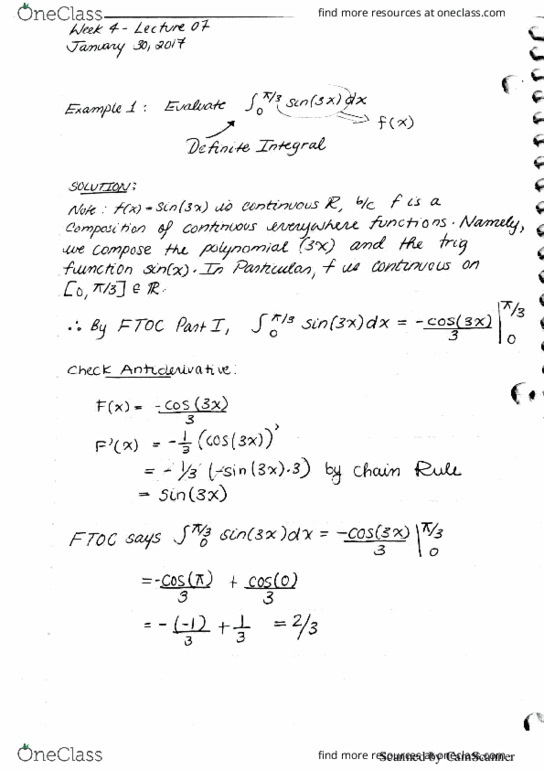 OneClass
find more resources at oneclass.com
Week 4 - Lecture 07
January 30, 2017
Example 1: Evaluate ∫₀^π/3 sin(3x)dx
f(x)
Definite Integral
SOLUTION:
Note: f(x) = sin(3x) is continuous ℝ, b/c f is a
composition of continuous everywhere functions. Namely,
we compose the polynomial (3x) and the trig
function sin(x). In Particular, f is continuous on
[0, π/3] ∈ ℝ.
∴ By FTOC Part I, ∫₀^π/3 sin(3x)dx = -cos(3x)/3 |₀^π/3
Check Antiderivative:
F(x) = -cos(3x)/3
F'(x) = -1/3 (cos(3x))'
= - 1/3 (-sin(3x)·3) by Chain Rule
= sin(3x)
FTOC says ∫₀^π/3 sin(3x)dx = -cos(3x)/3 |₀^π/3
= -cos(π)/3 + cos(0)/3
= -(-1)/3 + 1/3 = 2/3
OneClass
find more resources at oneclass.com
Scanned by CamScanner